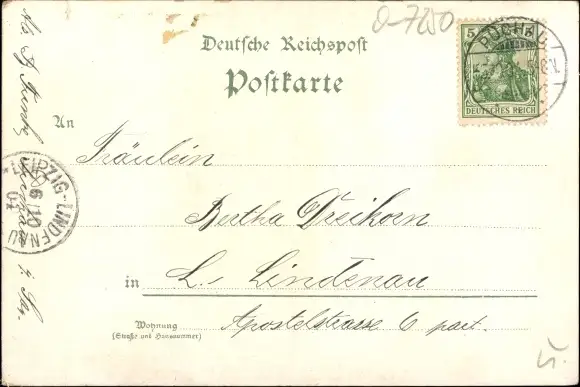 O-7250
Deutsche Reichspost
Postkarte
5
DEUTSCHES REICH
PÜCHAU
An
Fräulein
Bertha Dreikorn
in L. Lindenau
Wohnung
(Straße und Hausnummer)
Apostelstrasse 6 part.
LEIPZIG-LINDENAU
6 10
01